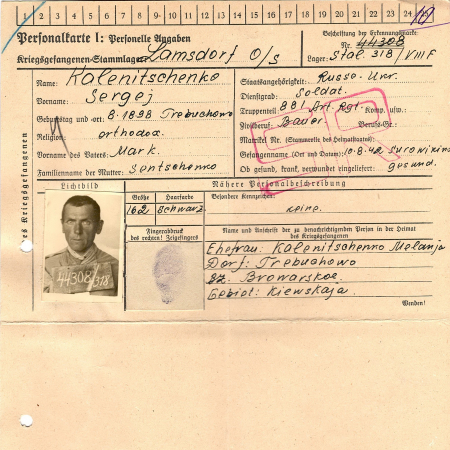 1 2 3 4 5 6 7 8 9 10 11 12 13 14 15 16 17 18 19 20 21 22 23 24
Personalkarte I: Personelle Angaben
Beschriftung der Erkennungsmarke
Nr. 44308
Kriegsgefangenen-Stammlager: Lamsdorf O/S
Lager: Stal. 318/VIII F
des Kriegsgefangenen
Name: Kalenitschenko
Vorname: Sergej
Geburtstag und -ort: 8.1898 Trebuchowo
Religion: orthodox.
Vorname des Vaters: Mark.
Familienname der Mutter: Sentschenko
Staatsangehörigkeit: Russe-Ukr.
Dienstgrad: Soldat.
Truppenteil: 881 Art. Rgt. Komp. usw.:
Zivilberuf: Bauer Berufs-Gr.
Matrikel Nr. (Stammrolle des Heimatstaates):
Gefangennahme (Ort und Datum): 10.8.42 Surowikino
Ob gesund, krank, verwundet eingeliefert: gesund.
Lichtbild
44308 318
Nähere Personalbeschreibung
Größe
Haarfarbe
Besondere Kennzeichen:
162
schwarz
keine.
Fingerabdruck
des rechten! Zeigefingers
Name und Anschrift der zu benachrichtigenden Person in der Heimat
des Kriegsgefangenen
Ehefrau: Kalenitschenko Melanja
Dorf: Trebuchowo
Bz. Browarskoe.
Gebiet: Kiewskaja.
Wenden!